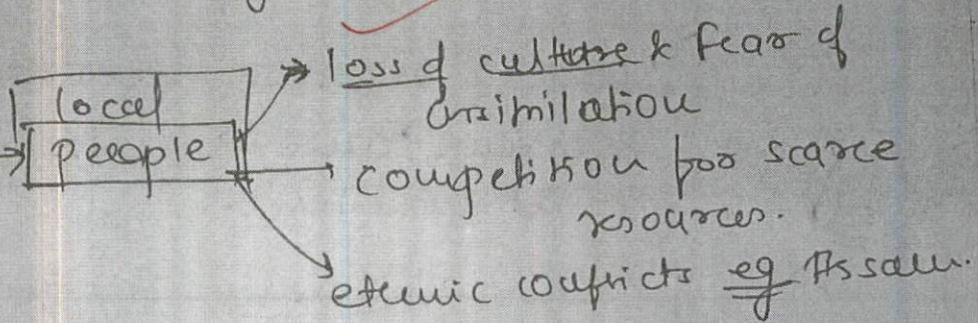 local
people
loss of culture & fear of
assimilation
competition for scarce
resources.
ethnic conflicts eg Assam.